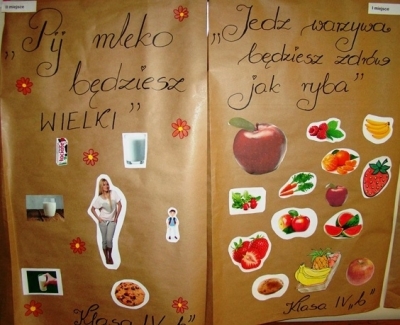 II miejsce
„Pij mleko
będziesz
WIELKI”
Klasa IV „b”
I miejsce
„Jedz warzywa
będziesz zdrów
jak ryba”
Klasa IV „b”